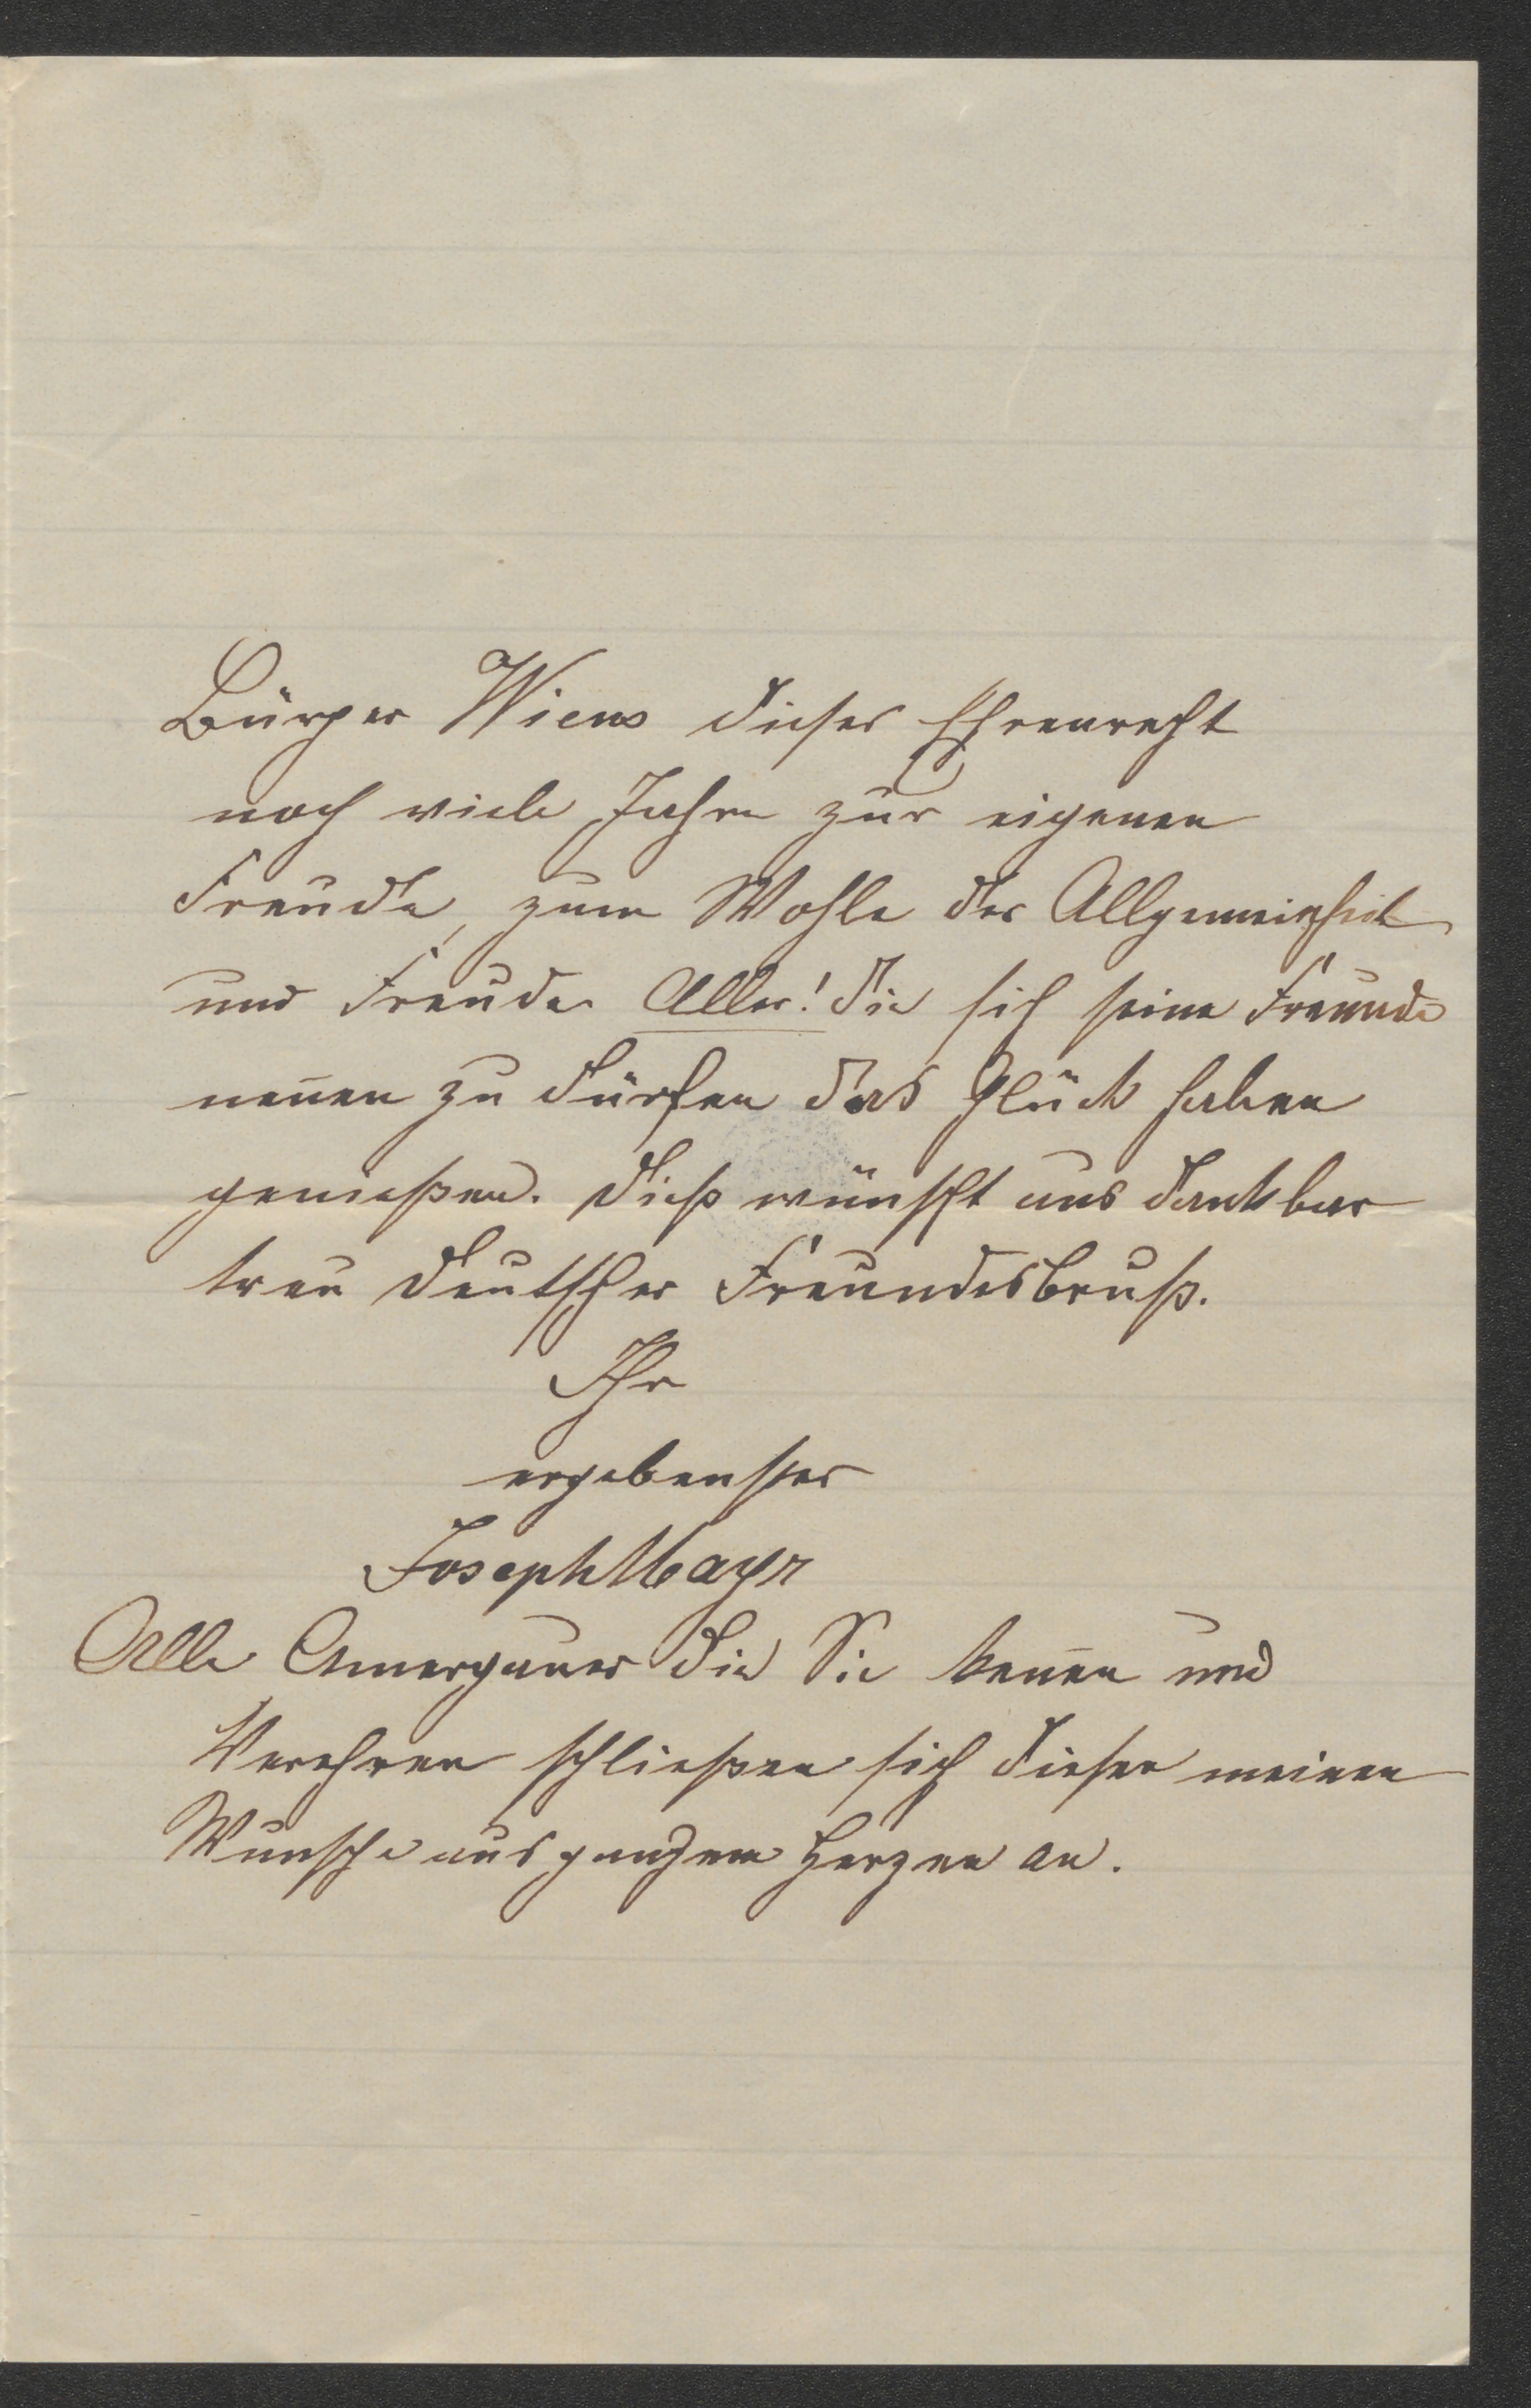 Bürger Wiens dieses Ehrenrecht
noch viele Jahre zur eigenen
Freude, zum Wohle der Allgemeinheit
und Freude Aller! die sich seine Freunde
nen̄en zu dürfen das Glück haben
genießen. Dieß wünscht aus dankbar
treu deutscher Freundesbrust.
Ihr
ergebenster
Joseph Mayr
Alle Amergauer die Sie ken̄en und
Verehren schließen sich diesen meinen
Wunsche aus ganzem Herzen an.